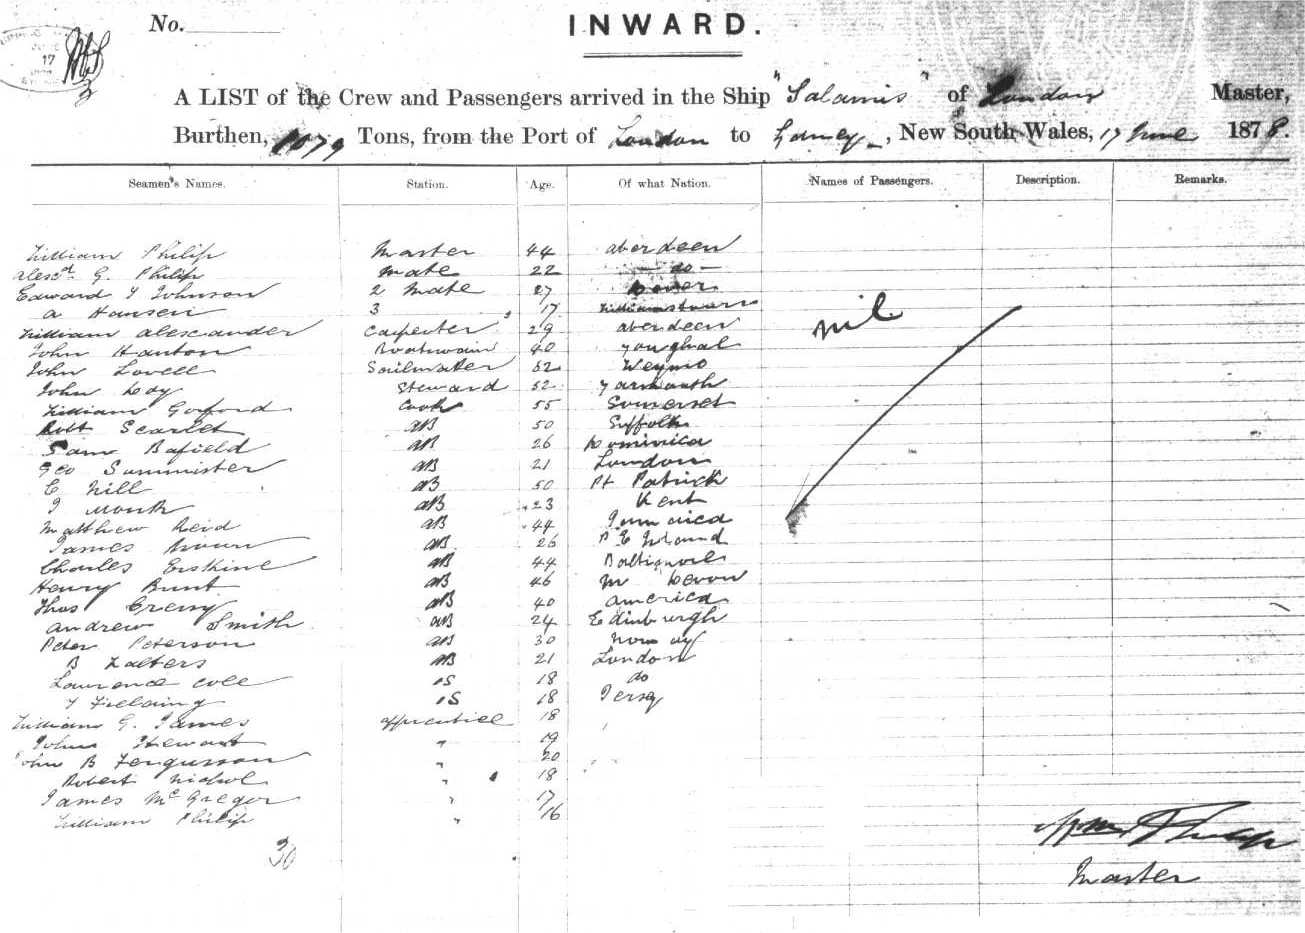 No.
INWARD.
A LIST of the Crew and Passengers arrived in the Ship "Salamis" of London Master,
Burthen, 1079 Tons, from the Port of London to Sydney, New South Wales, 17 June 1878.
Seamen's Names. Station. Age. Of what Nation. Names of Passengers. Description. Remarks.
William Philip Master 44 aberdeen
Alexr G. Philip Mate 22 - do -
Edward J Johnson 2 Mate 27 Dover
A Hansen 3 17 Williamstown
William Alexander Carpenter 29 aberdeen
nil
John Hanton Boatswain 40 Youghal
John Lovell Sailmaker 52
John Steward 52 Yarmouth
William Cook 55 Somerset
Robt Scarlet AB 50 Suffolk
Sam Bafield AB 26 Dominica
Geo Summister AB 21 London
E Nill AB 50 Pt Patrick
J Monk AB 23 Kent
Matthew Reid AB 44
James Brown AB 26 P E Island
Charles Erskine AB 44 Baltimore
Henry Bunt AB 46 N Devon
Thos AB 40 America
Andrew Smith AB 24 Edinburgh
Peter Peterson AB 30 Norway
B Walters AB 21 London
Lawrence Cole OS 18 do
J Fielding OS 18 Jersey
William G. James apprentice 18
John Stewart " 19
John B Fergusson " 20
Robert Nichol " 18
James McGregor " 17
William Philip " 16
30
Wm Philip
Master